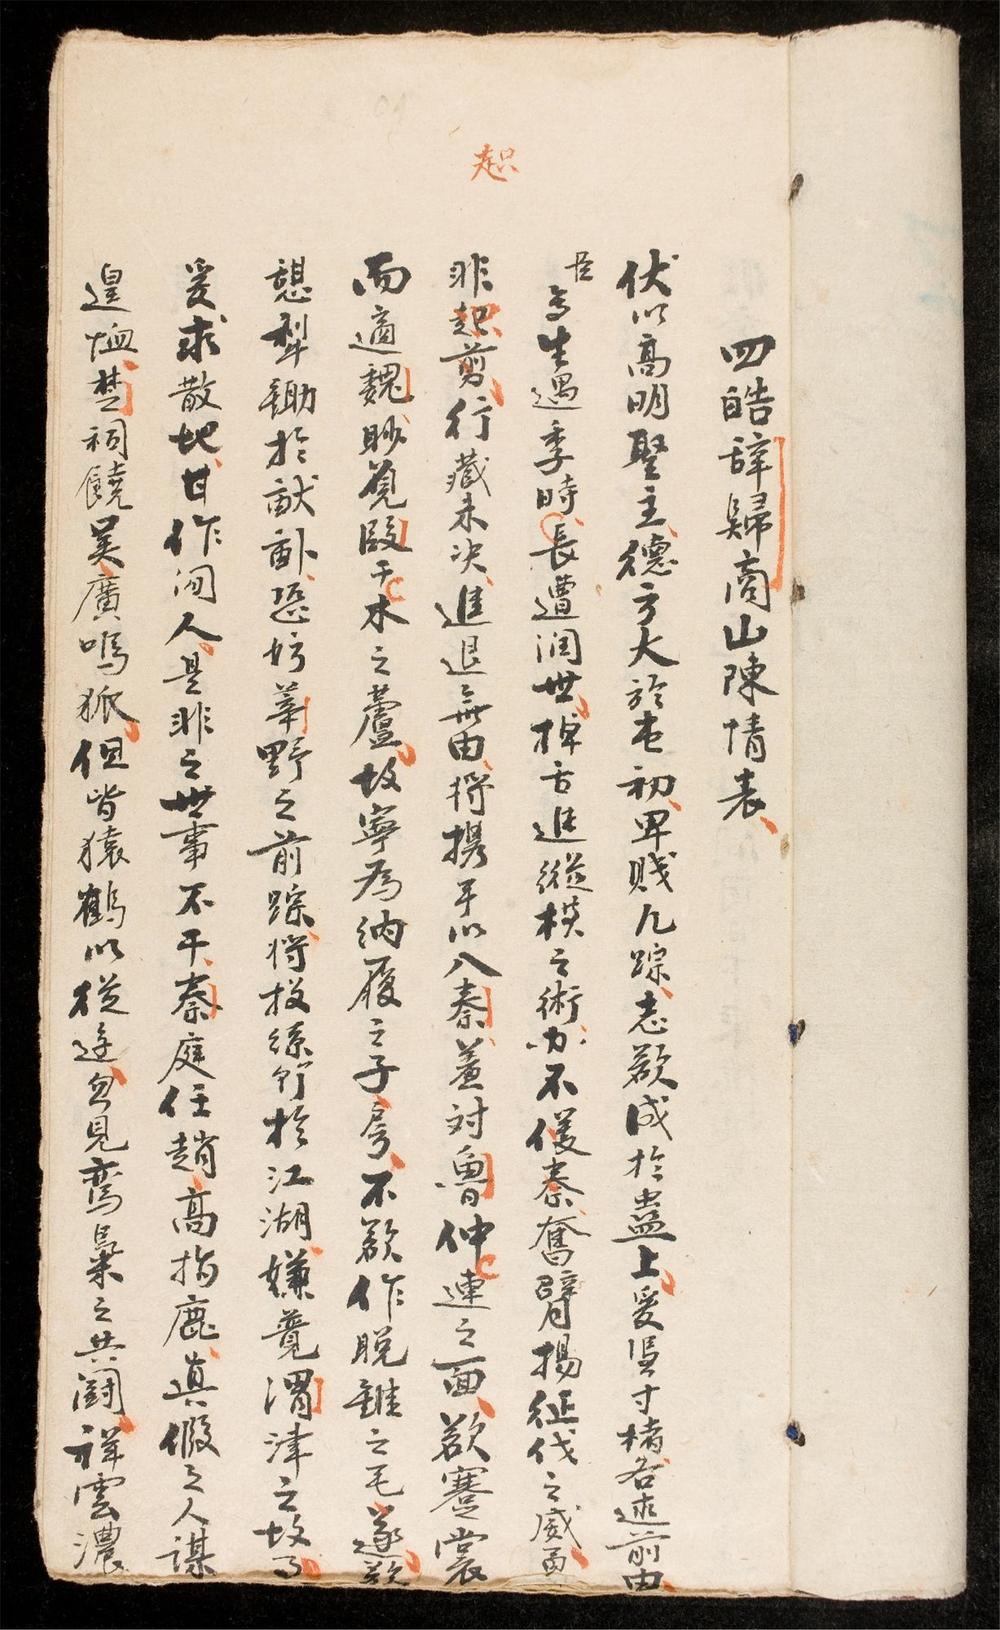 起
四皓辞歸商山陳情表
伏以高明聖主德方大於乾初卑賤凡踪志欲成於蠱上爰憑寸楮各述前由
臣等生遇季時長遭閏世掉舌進縱横之術力不優秦奮臂揚征伐之威面
非起剪行藏未决進退無由将携手以入秦羞对魯仲連之面欲褰裳
而適魏眇覓段干木之蘆故寧為納履之子房不欲作脱錐之毛遂欲
憇犁鋤於畎畝恐妨莘野之前踪将投絲竹於江湖嫌覺渭津之故事
爰求散地甘作间人是非之世事不干秦庭任趙高指鹿真假之人謀
遑恤楚祠饒吴廣鳴狐但皆猿鶴以從遊忽見鸞梟之共闘祥雲濃